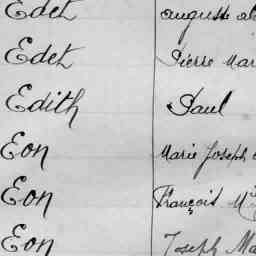 Edet Auguste
Edet Pierre Mar
Edith Paul
Eon Marie Joseph
Eon François M
Eon Joseph Ma